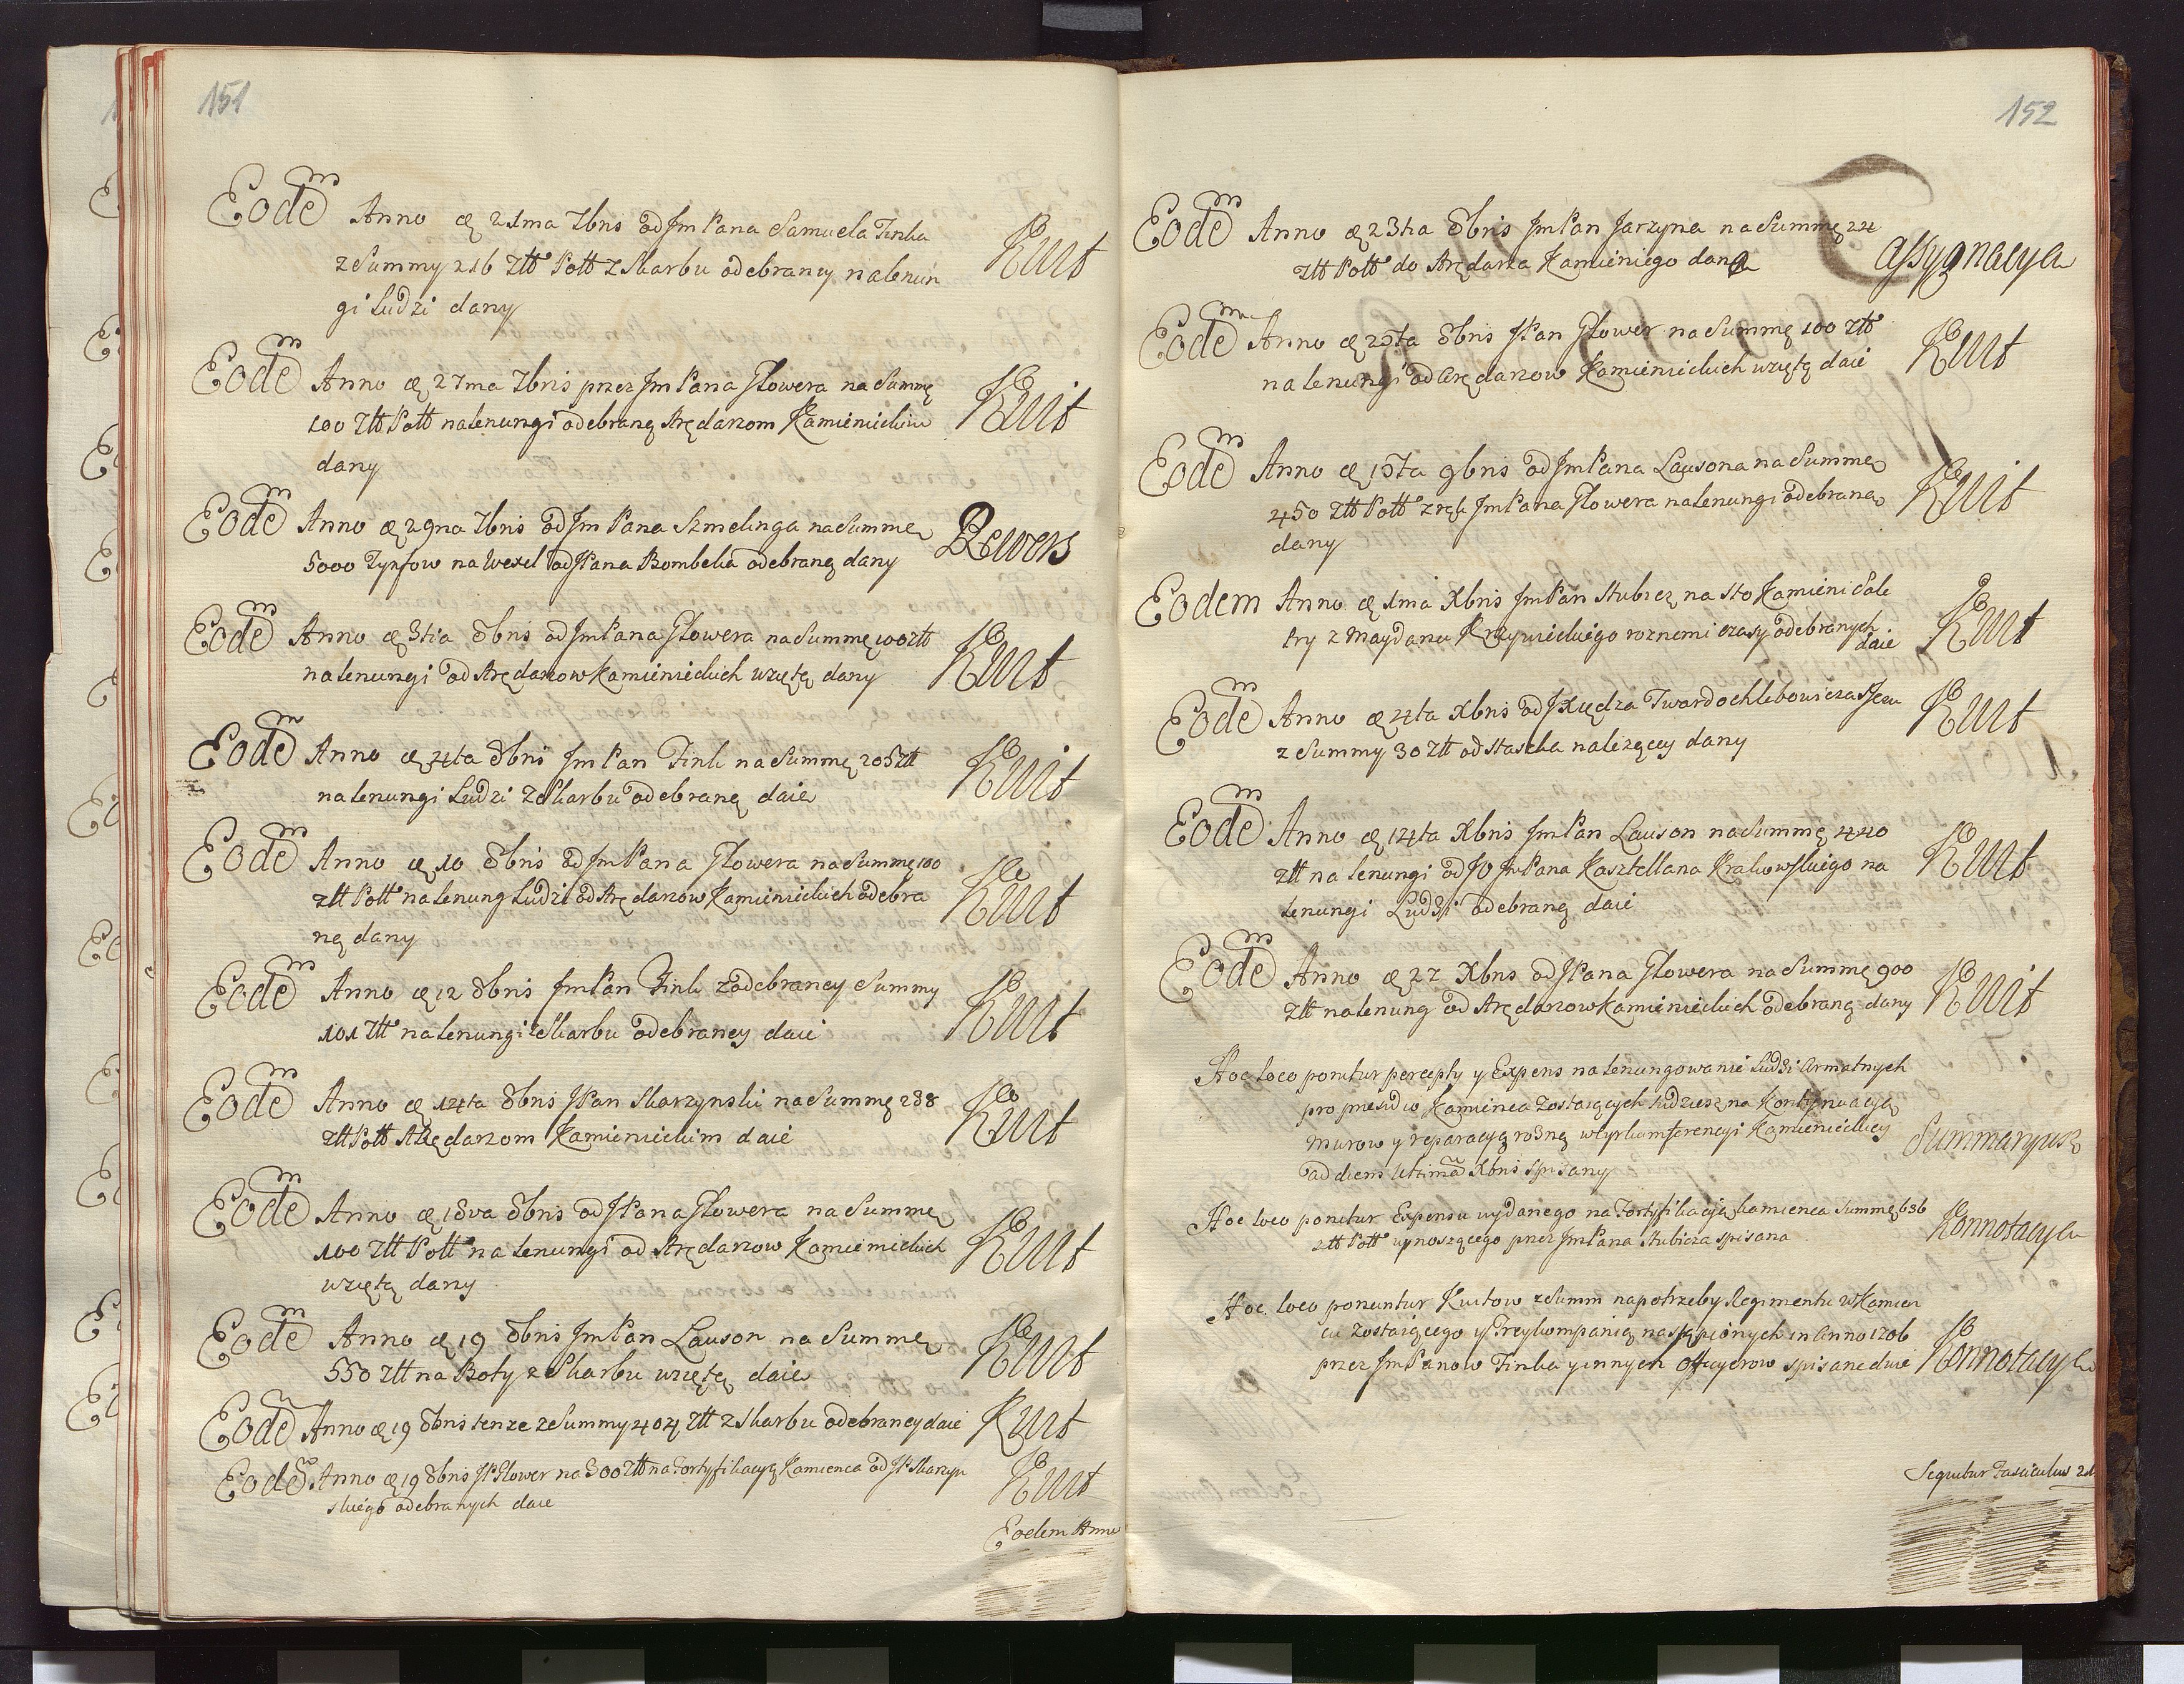 151
Eodem Anno d. 21ma 7bris od Jm Pana Samuela Finka
z Summy 216 Ztt Poltt z Skarbu odebraney na lenun Kwit
gi Ludzi dany
Eodem Anno d. 27ma 7bris przez Jm Pana Glowera na Summę
100 Ztt Poltt na lenungi odebraną Arędarzom Kamienieckim Kwit
dany
Eodem Anno d. 29na 7bris od Jm Pana Szmelinga na Summę
5000 Tynfow na Wexel od JPana Bombeka odebraną dany Rewers
Eodem Anno d. 3tia 8bris od Jm Pana Glowera na Summę 100 ztt
na lenungi od Arędarzow Kamienieckich wziętą dany Kwit
Eodem Anno d. 4ta 8bris Jm Pan Fink na Summę 205 ztt
na lenungi Ludzi z Skarbu odebraną daie Kwit
Eodem Anno d. 10 8bris od Jm Pana Glowera na Summę 100
ztt Poltt na lenung Ludzi od Arędarzow Kamienieckich odebra Kwit
ną dany
Eodem Anno d. 12 8bris Jm Pan Fink z odebraney Summy
101 Ztt na lenungi z Skarbu odebraney daie Kwit
Eodem Anno d. 14ta 8bris JPan Skarzynski na Summę 288
ztt Poltt Arędarzom Kamienieckim daie Kwit
Eodem Anno d. 18va 8bris od JPana Glowera na Summę
100 Ztt Poltt na lenungi od Arędarzow Kamienieckich Kwit
wziętą dany
Eodem Anno d. 19 8bris Jm Pan Lauson na Summę
550 Ztt na Boty z Skarbu wziętą daie Kwit
Eodem Anno d. 19 8bris tenze z Summy 404 Ztt z Skarbu odebraney daie Kwit
Eodem Anno d. 19 8bris JP. Glower na 300 Ztt na Fortyfikacyą Kamienca od JP. Skarzyn
skiego odebranych daie Kwit
Eodem Anno
152
Eodem Anno d. 23tia 8bris Jm Pan Jarzyna na Summę 24
ztt Poltt do Arędarza Kamieniego dana Assygnacya
Eodem Anno d. 25ta 8bris JPan Glower na Summę 100 Ztt
na lenungi od Arędarzow Kamienieckich wziętą daie Kwit
Eodem Anno d. 15ta 9bris od Jm Pana Lausona na Summę
450 Ztt Poltt z rąk Jm Pana Glowera na lenungi odebraną Kwit
dany
Eodem Anno d. 1ma Xbris Jm Pan Stubicz na sto Kamieni Sale
try z Maydanu Krzywieckiego roznemi czasy odebranych Kwit
daie
Eodem Anno d. 4ta Xbris od JXiędza Twardochlebowicza SJezu
z Summy 30 Ztt od Staska nalezącey dany Kwit
Eodem Anno d. 14ta Xbris Jm Pan Lauson na Summę 440
ztt na lenungi od JO Jm Pana Kasztellana Krakowskiego na Kwit
lenungi Ludzi odebraną daie
Eodem Anno d. 27 Xbris od JPana Glowera na Summę 900
Ztt na lenung od Arędarzow Kamienieckich odebraną dany Kwit
Hoc loco ponitur percepty y Expens na lenungowanie Ludzi Armatnych
pro praesidio Kamienca zostaiących tudziesz na Kontynuacyą
Murow y reparacyą rozną w Cyrkumferencyi Kamienieckiey Summaryusz
ad diem ultimã Xbris spisany
Hoc loco ponitur Expensu wydanego na Fortyfikacyą Kamienca Summę 636
ztt Poltt wynoszącego przez Jm Pana Stubicza spisana Konnotacya
Hoc loco ponuntur Kwitow z Summ na potrzeby Regimentu w Kamien
cu zostaiącego y Freykompanią nastąpionych in Anno 1706
przez Jm Panow Finka y innych Officyerow spisane dwie Konnotacye
Sequitur Fasciculus 2d